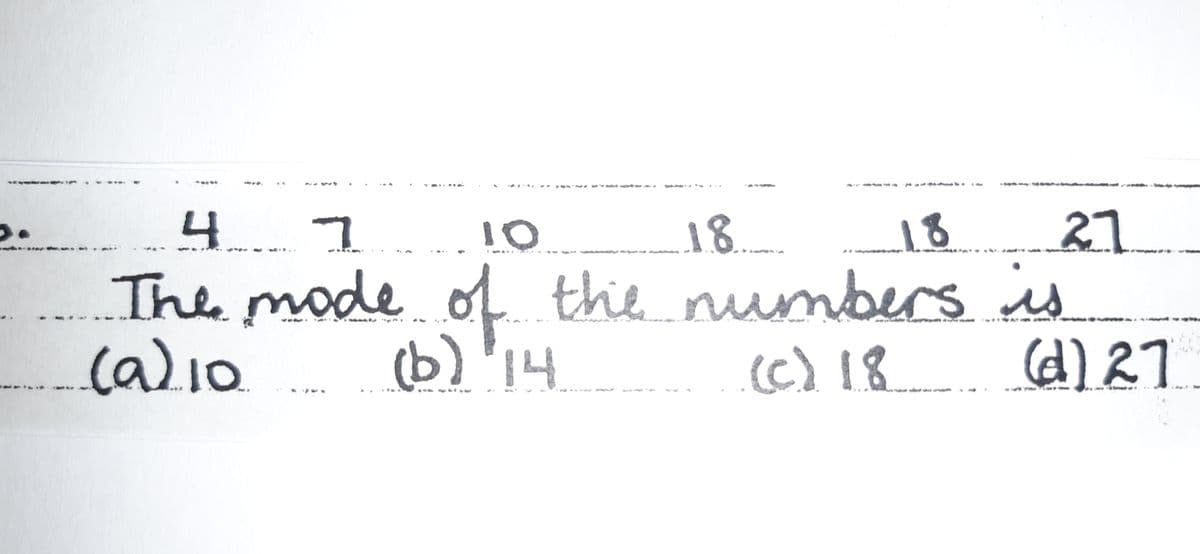 4 7 10 18 18 27
The mode of the numbers is
(a) 10 (b) 14 (c) 18 (d) 27